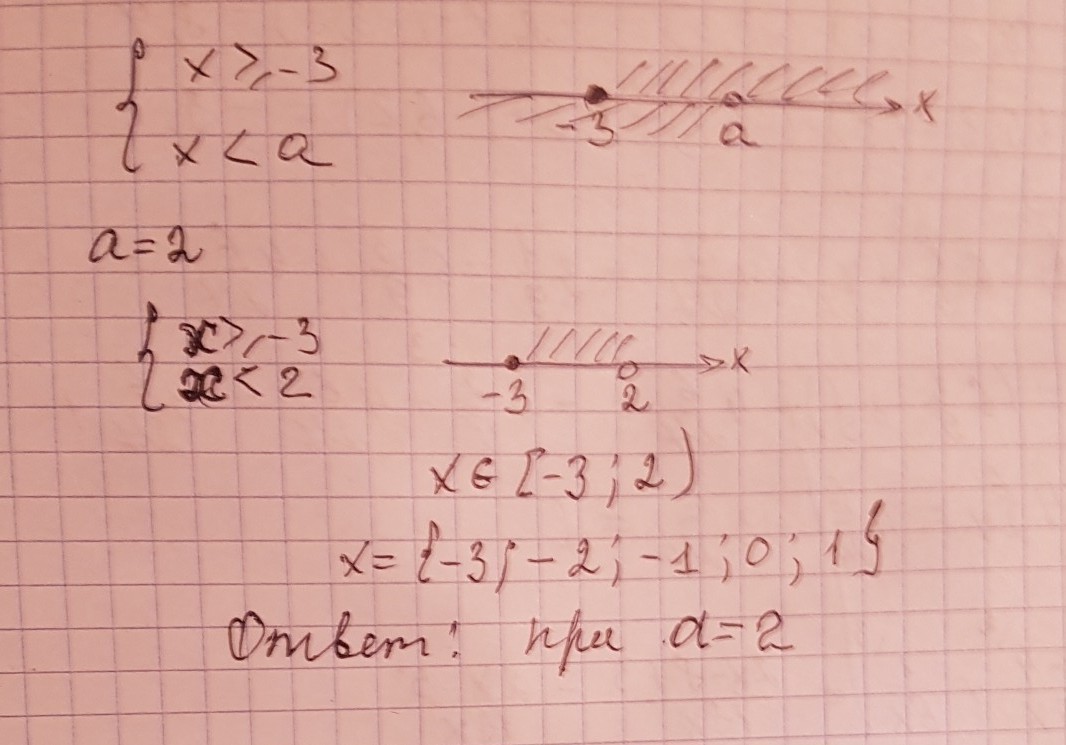 x ≥ -3
x < a
-3 a x
a = 2
x ≥ -3
x < 2
-3 2 x
x ∈ [-3; 2)
x = {-3; -2; -1; 0; 1}
Ответ: при a = 2